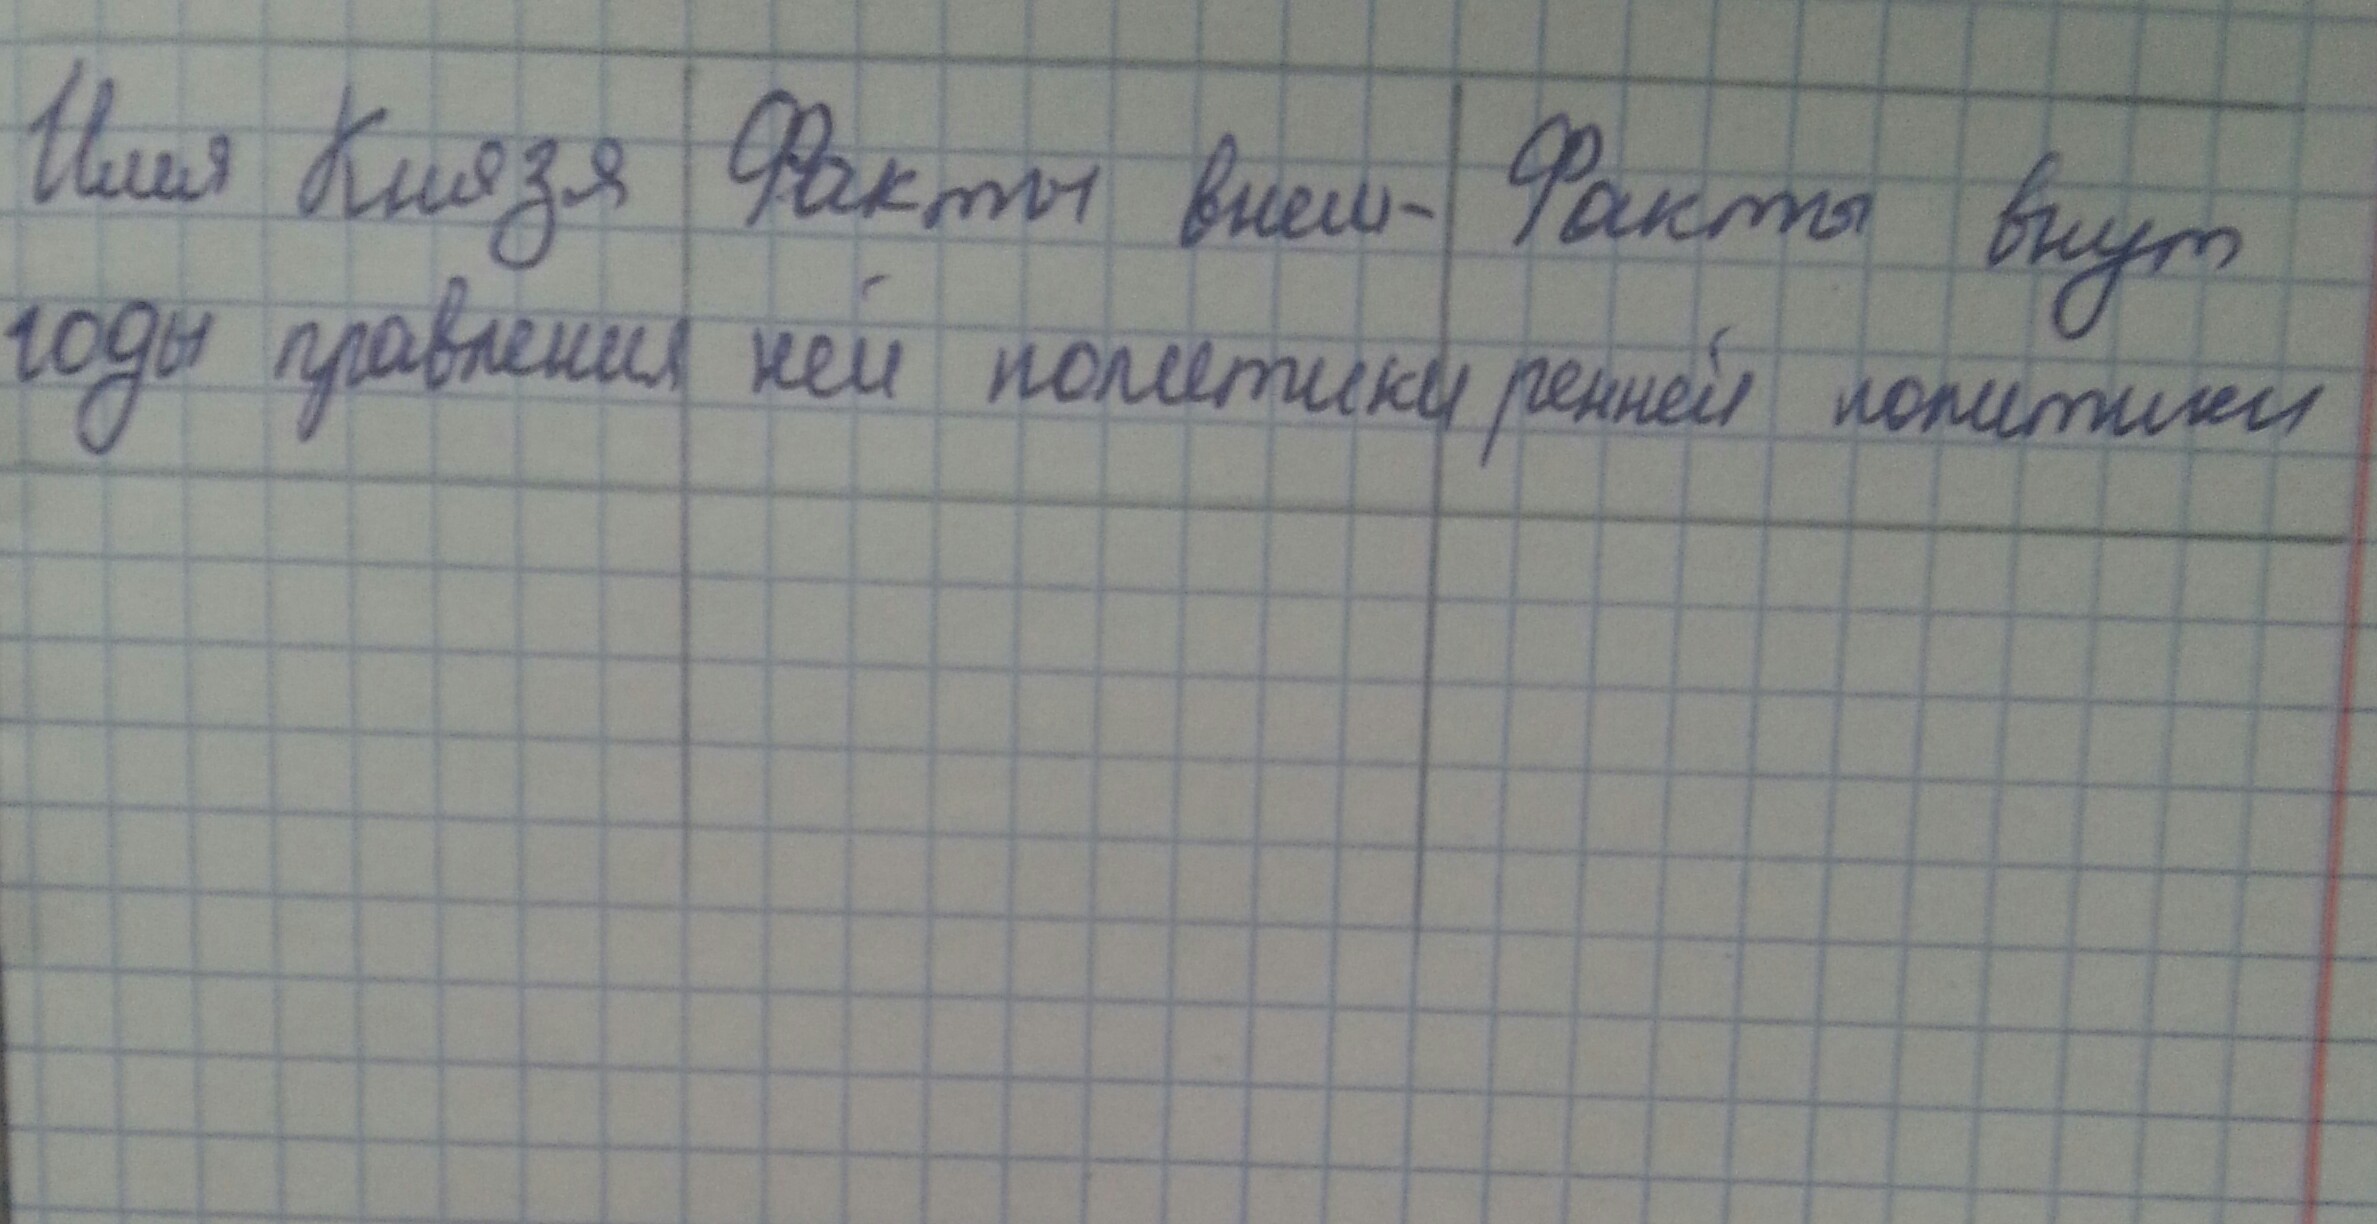 Имя Князя
годы правления
Факты внеш-
ней политики
Факты внут
ренней политики